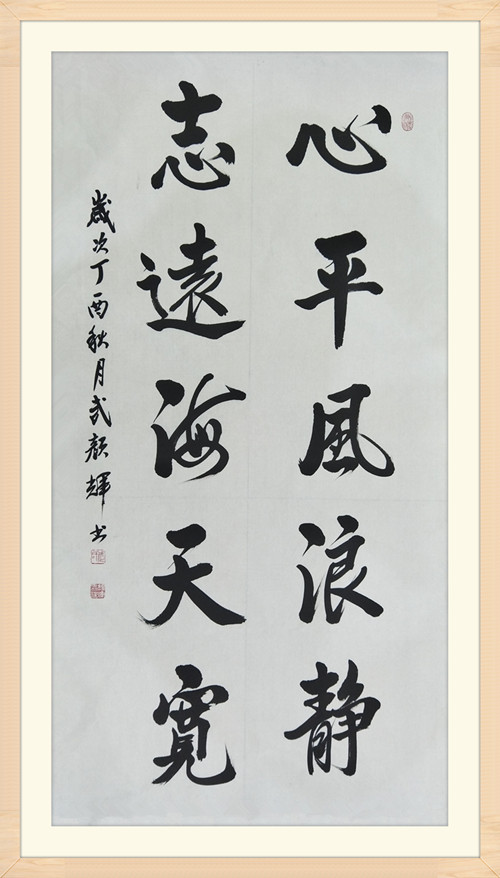 心平風浪静
志遠海天寬
歲次丁酉秋月武颜輝书